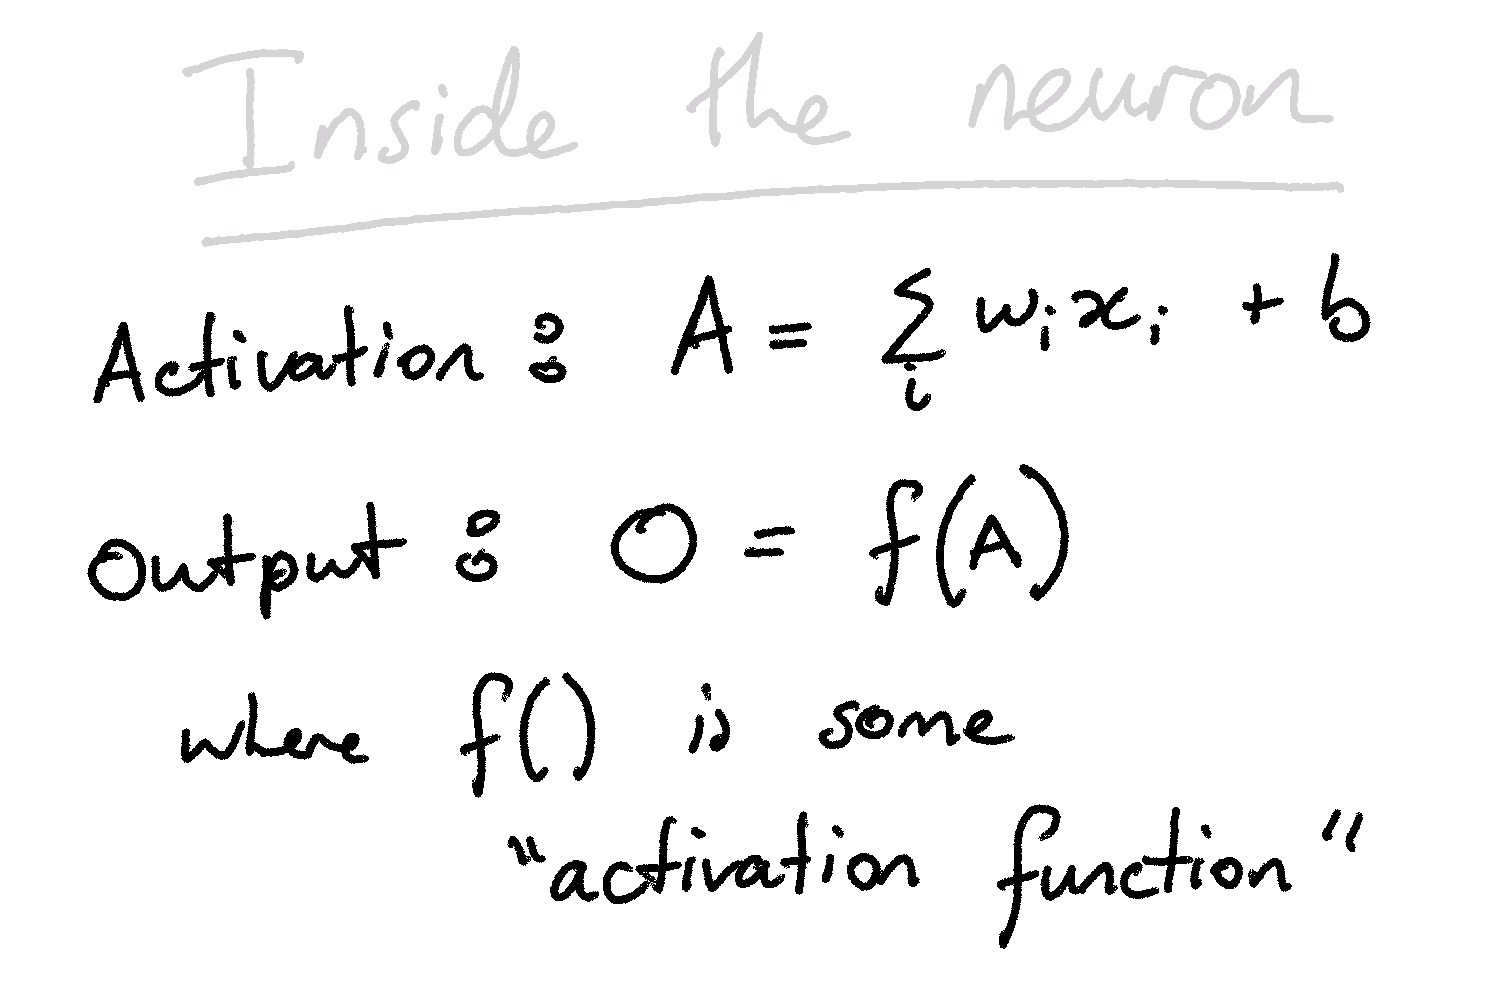 Inside the neuron
Activation : A = ∑ᵢ wᵢxᵢ + b
Output : O = f(A)
where f() is some
"activation function"